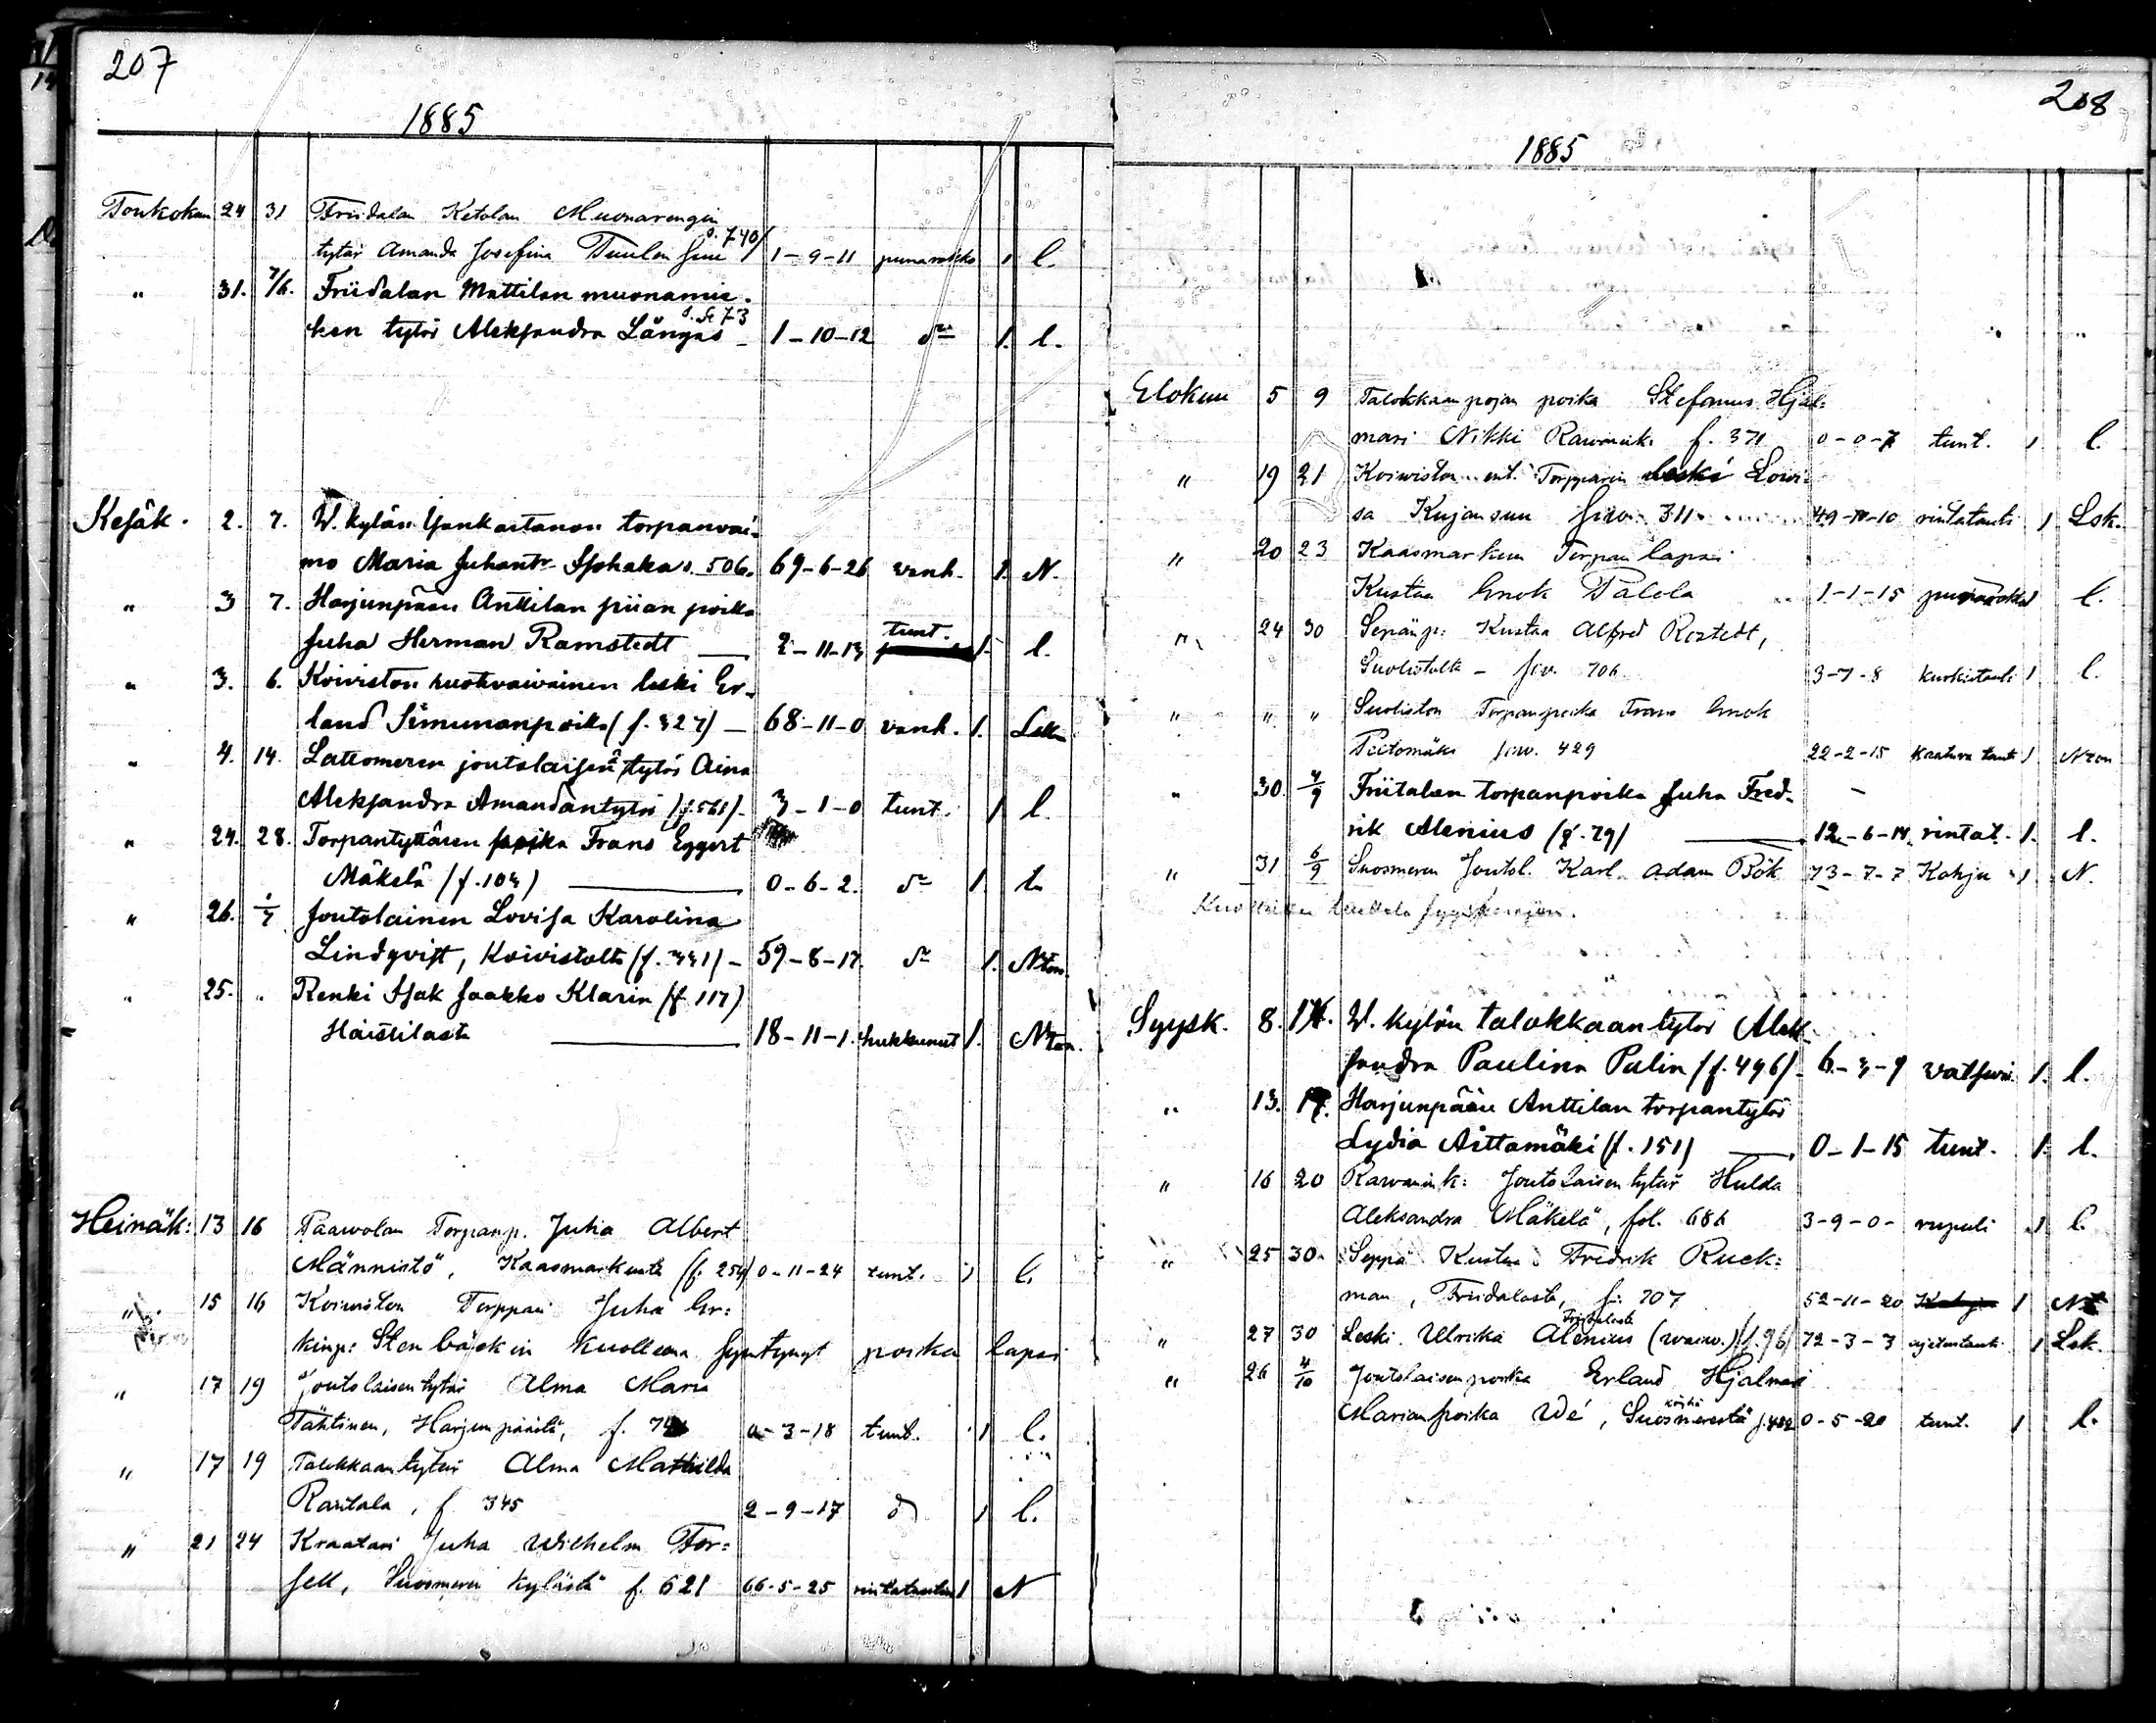 207
1885
Toukokuu 24 31 Friidalan Ketolan Muonarengin
tytär Amanda Josefina Tuulen s. 740/ 1-9-11 punarokko 1 l.
" 31. 7/6. Friidalan Mattilan muonamie-
hen tytör Aleksandra Långas 73 1-10-12 dº 1. l.
Kesäk. 2. 7. W. kylän Yonkartanon torpanvai-
mo Maria Juhantr s. 506. 69-6-26 vanh. 1. N.
" 3 7. Harjunpään Anttilan piian poika
Juha Herman Ramstedt 2-11-13 tunt. 1. l.
" 3. 6. Koiviston huotvaivainen leski Er-
land Simunanpoika (f. 327) 68-11-0 vanh. 1. Lsk
" 4. 14. Lattomeren joutolaisen tytör Aina
Aleksandra Amandantytör (f. 561) 3-1-0 tunt. 1 l.
" 24. 28. Torpantyttären poika Frans Eggert
Mäkelä (f. 104) 0-6-2. dº 1. l.
" 26. 1/7 Joutolainen Lovisa Karolina
Lindqvist, Koivistolta (f. 331) 59-8-17. dº 1. Nton.
" 25. " Renki Isak Jaakko Klarin (f. 117)
Haistilasta 18-11-1. hukkunut 1. Nton.
Heinäk: 13 16 Paawolan Torpanp. Juha Albert
Männistö, Kaasmarkusta (f. 254) 0-11-24 tunt. 1 l.
" 15 16 Koiwiston Torppari Juha Er:
kinp: Stenbäckin kuollena syntynyt poika lapsi
" 17 19 Joutolaisen tytär Alma Maria
Tähtinen, Harjunpäästä, f. 0-3-18 tunt. 1 l.
" 17 19 Talokkaan tytär Alma Mathilda
Rantala, f. 345 2-9-17 d 1 l.
" 21 24 Kraatari Juha Wilhelm For:
sell, Suosmeren kylästä f. 621 66-5-25 rintatautiin 1 N
208
1885
Elokuu 5 9 Talokkaan pojan poika Stefanus Hjal:
mari Nikki Rawanik. f. 371 0-0-7 tunt. 1 l.
" 19 21 Koiwiston ent. Torpparin leski Lowi:
sa Kujansuu siw. 311 49-10-10 rintatauti 1 Lsk.
" 20 23 Kaasmarkun Torpan lapsi
Kustaa Enok Palola 1-1-15 punarokko 1 l.
" 24 30 Sepänp: Kustaa Alfred Rostedt,
Suolistolta - siv. 706. 3-7-8 kurkkutauti 1 l.
" " " Suoliston Torpanpoika Frans Enok
Peitomäki siw. 429 22-2-15 kaatuva tauti 1 Nton
" 30. 4/9 Friitalan torpanpoika Juha Fred-
rik Alenius (f. 79) 12-6-14. rintat. 1. l.
" 31 6/9 Suosmeren Joutol. Karl Adam Bök 73-7-7 Kohju 1. N.
Syysk. 8. 14. W. kylän talokkaan tytör Alek-
sandra Paulina Palin (f. 496) 6-3-9 vatsuri 1. l.
" 13. 17. Harjunpään Anttilan torpantytör
Lydia Aittamäki (f. 151) 0-1-15 tunt. 1. l.
" 16 20 Rawanik: Joutolaisen tytär Hulda
Aleksandra Mäkelä, fol. 686 3-9-0- rupuli 1 l.
" 25 30 Seppä Kustaa Fredrik Ruck:
man, Friidalasta, f: 707 52-11-20 Kohju 1 N
" 27 30 Leski Ulrika Alenius Friidalasta (waiw.) f. 96 72-3-3 ajetustauti 1 Lsk.
" 26 4/10 Joutolaisen poika Erland Hjalmari
Marianpoika Wé, Suosmerestä f. 482 0-5-20 tunt. 1 l.